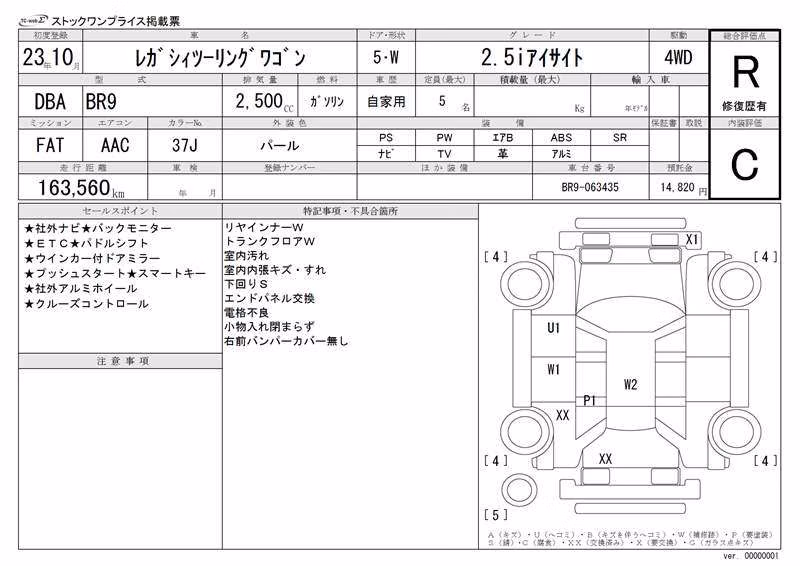 TC-webΣ ストックワンプライス掲載票
初度登録 車名 ドア・形状 グレード 駆動 総合評価点
23年10月 ﾚｶﾞｼｨﾂｰﾘﾝｸﾞﾜｺﾞﾝ 5・W 2.5iｱｲｻｲﾄ 4WD R
修復歴有
型式 排気量 燃料 車歴 定員(最大) 積載量(最大) 輸入車
DBA BR9 2,500CC ｶﾞｿﾘﾝ 自家用 5名 Kg 年ﾓﾃﾞﾙ
ミッション エアコン カラーNo. 外装色 装備 保証書 取説 内装評価
FAT AAC 37J パール PS PW ｴｱB ABS SR C
ﾅﾋﾞ TV 革 ｱﾙﾐ
走行距離 車検 登録ナンバー ほか装備 車台番号 預託金
163,560km 年 月 BR9-063435 14,820円
セールスポイント
★社外ナビ★バックモニター
★ETC★パドルシフト
★ウインカー付ドアミラー
★プッシュスタート★スマートキー
★社外アルミホイール
★クルーズコントロール
注意事項
特記事項・不具合箇所
リヤインナーW
トランクフロアW
室内汚れ
室内内張キズ・すれ
下回りS
エンドパネル交換
電格不良
小物入れ閉まらず
右前バンパーカバー無し
X1
[4] [4]
U1
W1
W2
P1
XX
XX
[4] [4]
[5]
A(キズ)・U(ヘコミ)・B(キズを伴うヘコミ)・W(補修跡)・P(要塗装)
S(錆)・C(腐食)・XX(交換済み)・X(要交換)・G(ガラス点キズ)
ver. 00000001